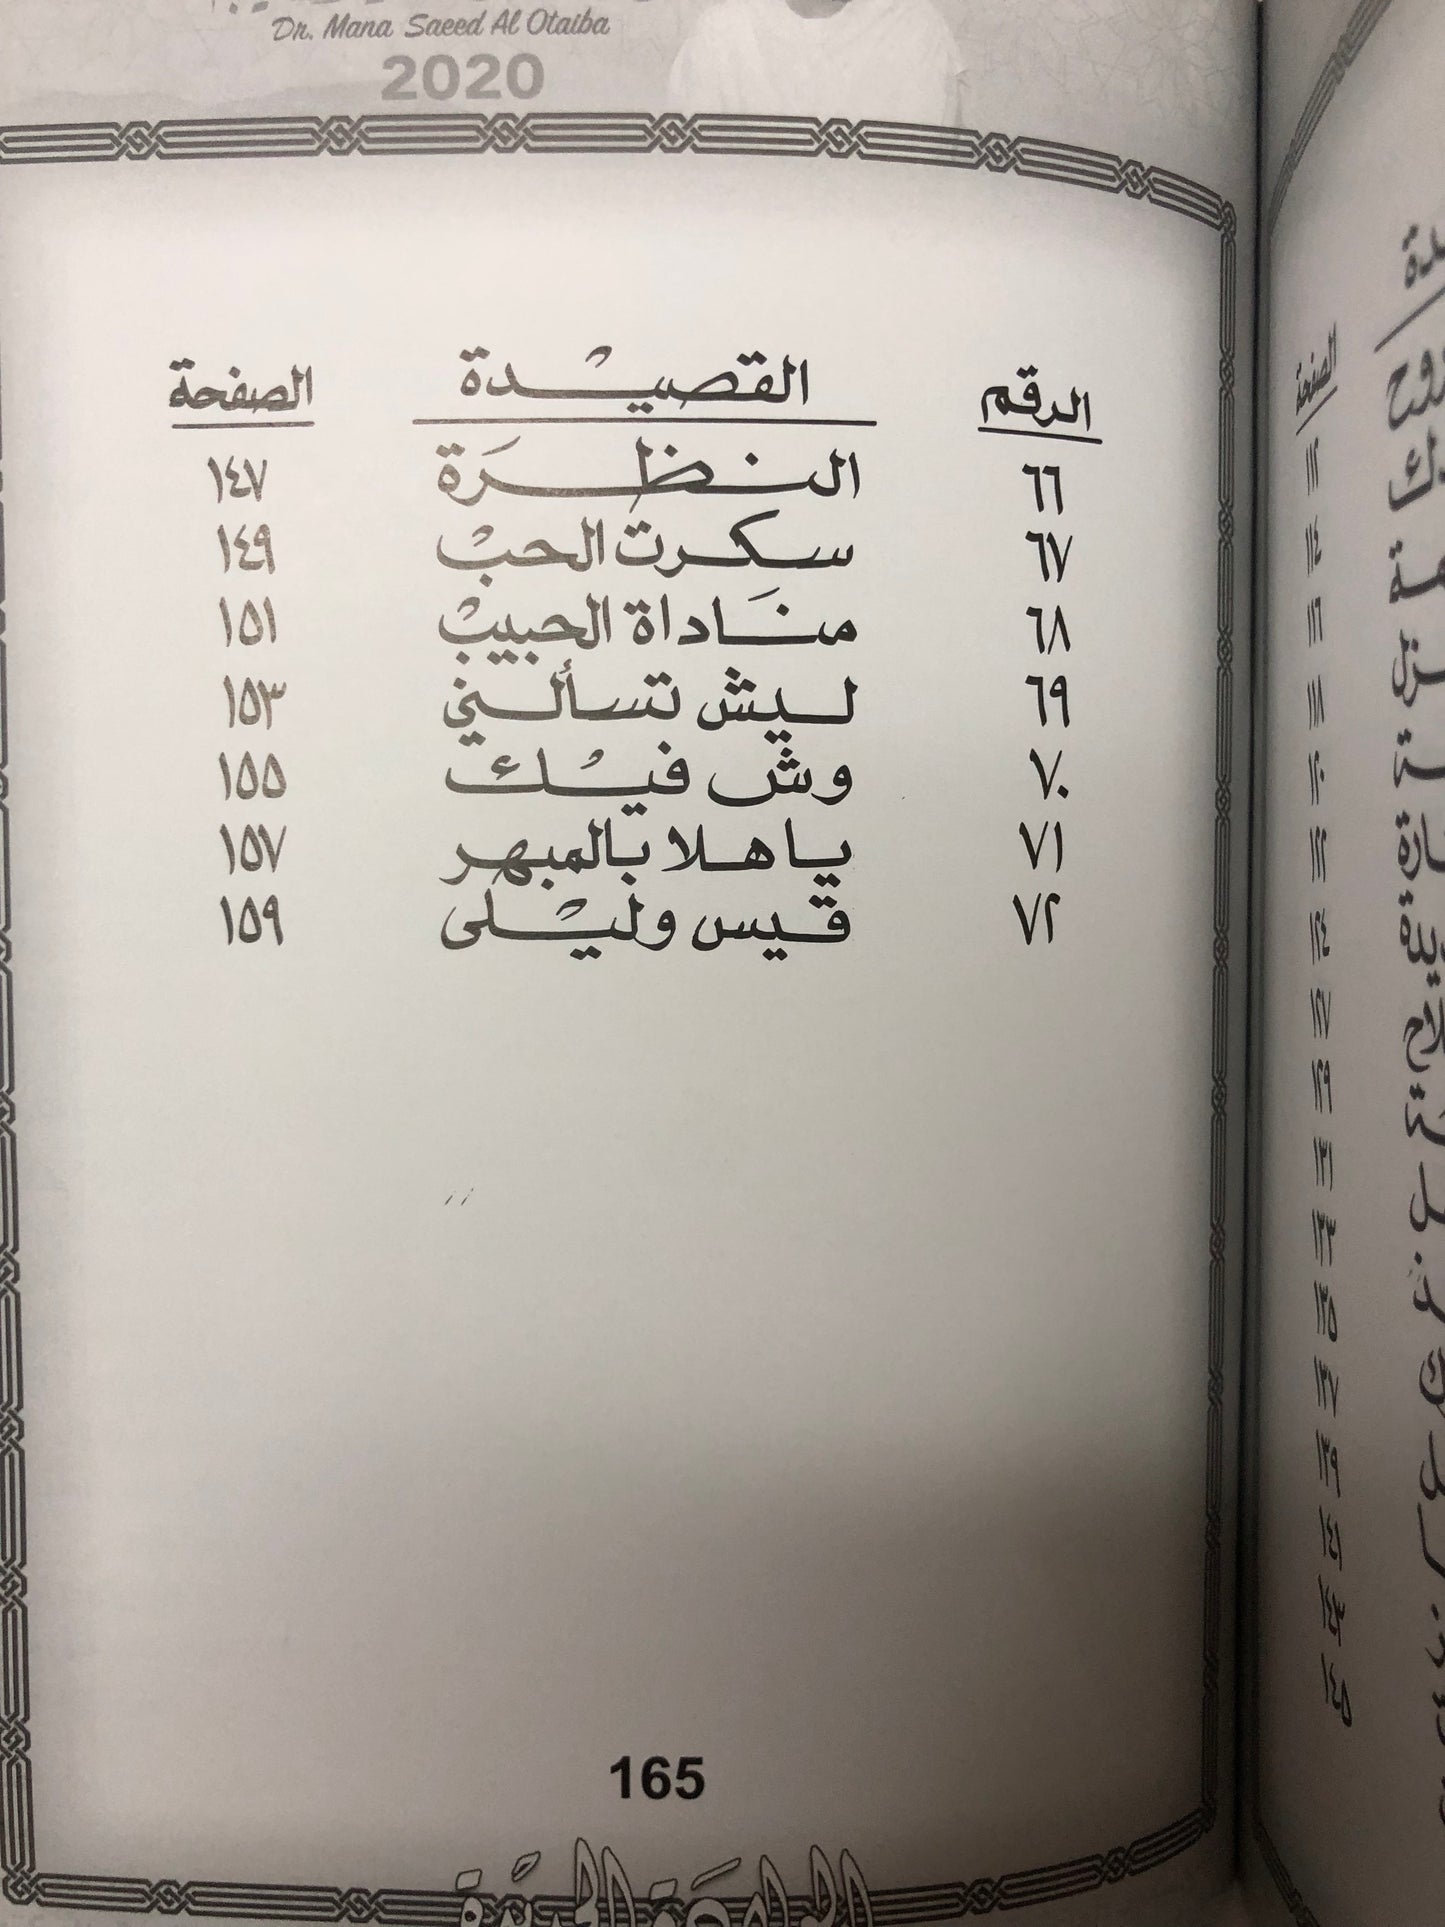 Dr. Mana Saeed Al Otaiba
2020
الرقم القصيدة الصفحة
٦٦ النظرة ١٤٧
٦٧ سكرت الحب ١٤٩
٦٨ مناداة الحبيب ١٥١
٦٩ ليش تسألني ١٥٣
٧٠ وش فيك ١٥٥
٧١ يا هلا بالمبهر ١٥٧
٧٢ قيس وليلى ١٥٩
165
الصفحة
١١٢
١١٤
١١٦
١١٨
١٢٠
١٢٢
١٢٤
١٢٧
١٢٩
١٣١
١٣٣
١٣٥
١٣٧
١٣٩
١٤١
١٤٣
١٤٥